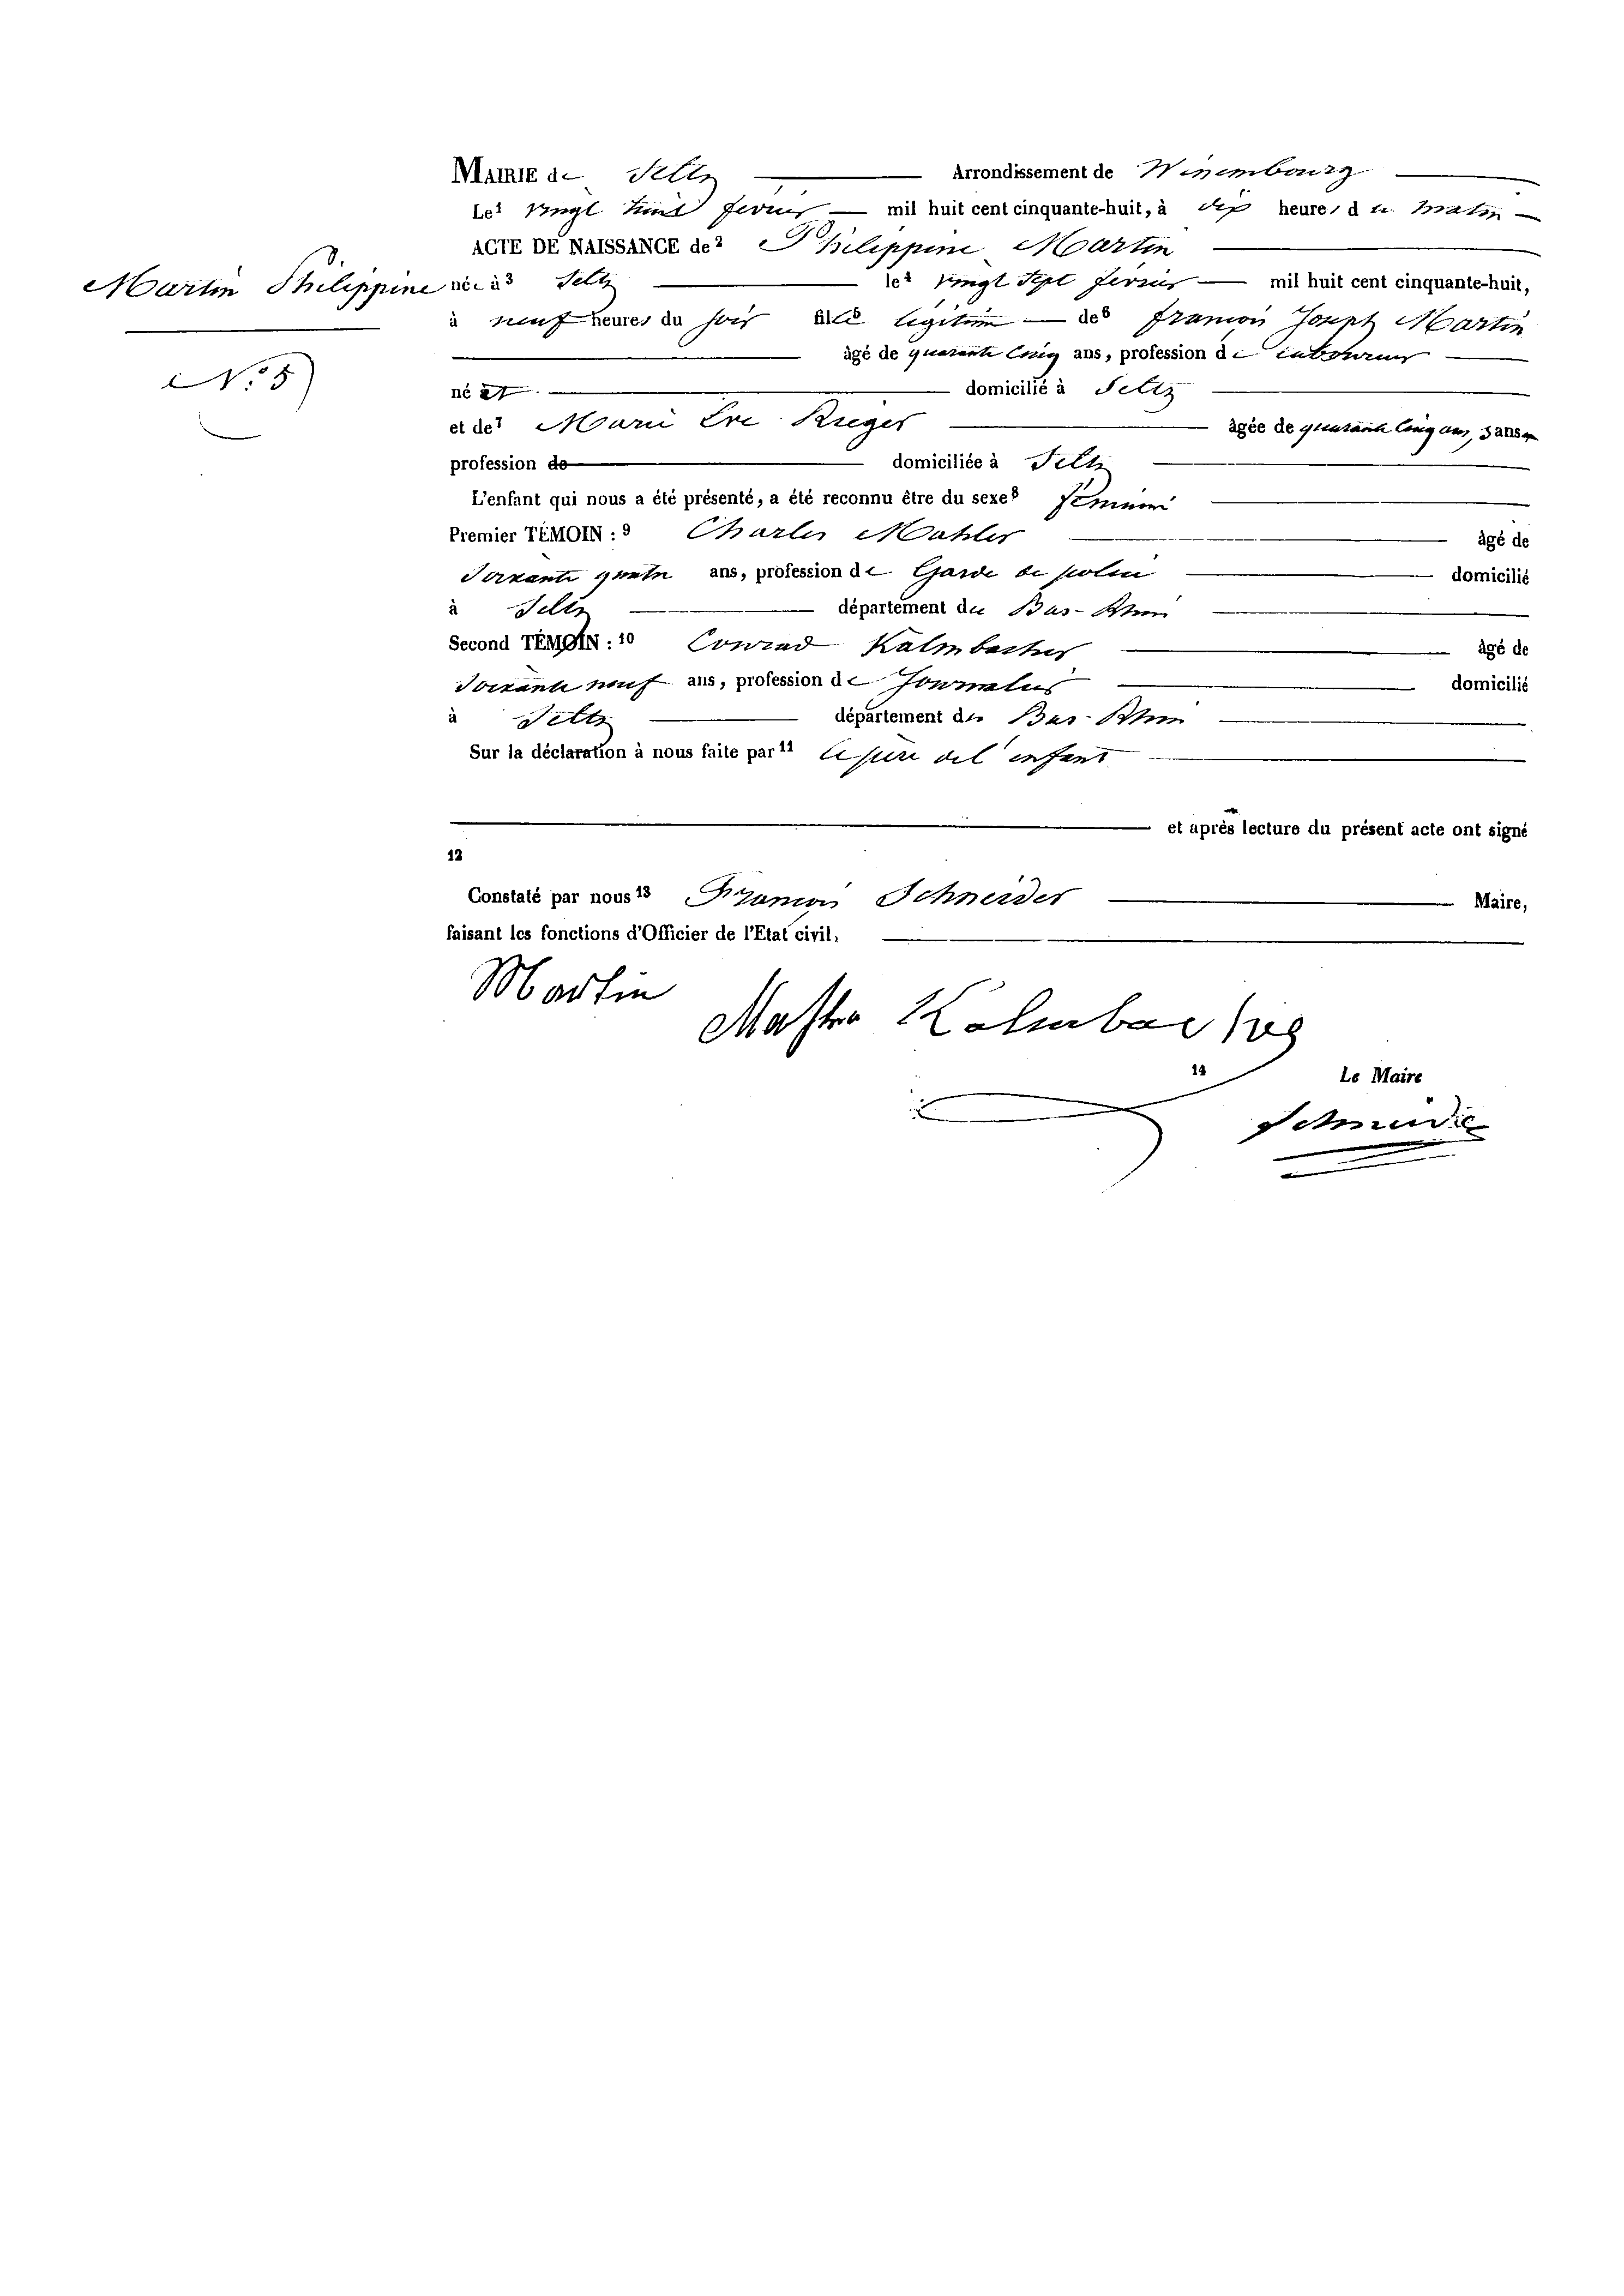 MAIRIE de Seltz Arrondissement de Wissembourg
Le¹ vingt huit fevrier mil huit cent cinquante-huit, à dix heures du matin
ACTE DE NAISSANCE de² Philippine Martin
Martin Philippine
N.° 5
née à³ Seltz le⁴ vingt sept fevrier mil huit cent cinquante-huit,
à neuf heures du soir fille⁵ légitime de⁶ François Joseph Martin
âgé de quarante cinq ans, profession de Laboureur
né et domicilié à Seltz
et de⁷ Marie Eve Rieger âgée de quarante cinq ans, sans
profession de domiciliée à Seltz
L'enfant qui nous a été présenté, a été reconnu être du sexe⁸ féminin
Premier TÉMOIN :⁹ Charles Mahler âgé de
soixante quatre ans, profession de Garde de police domicilié
à Seltz département du Bas-Rhin
Second TÉMOIN :¹⁰ Conrad Kalmbacher âgé de
soixante neuf ans, profession de Journalier domicilié
à Seltz département du Bas-Rhin
Sur la déclaration à nous faite par¹¹ le père de l'enfant
et après lecture du présent acte ont signé
12
Constaté par nous¹³ François Schneider Maire,
faisant les fonctions d'Officier de l'Etat civil,
Martin
Kalmbacher
14 Le Maire
Schneider